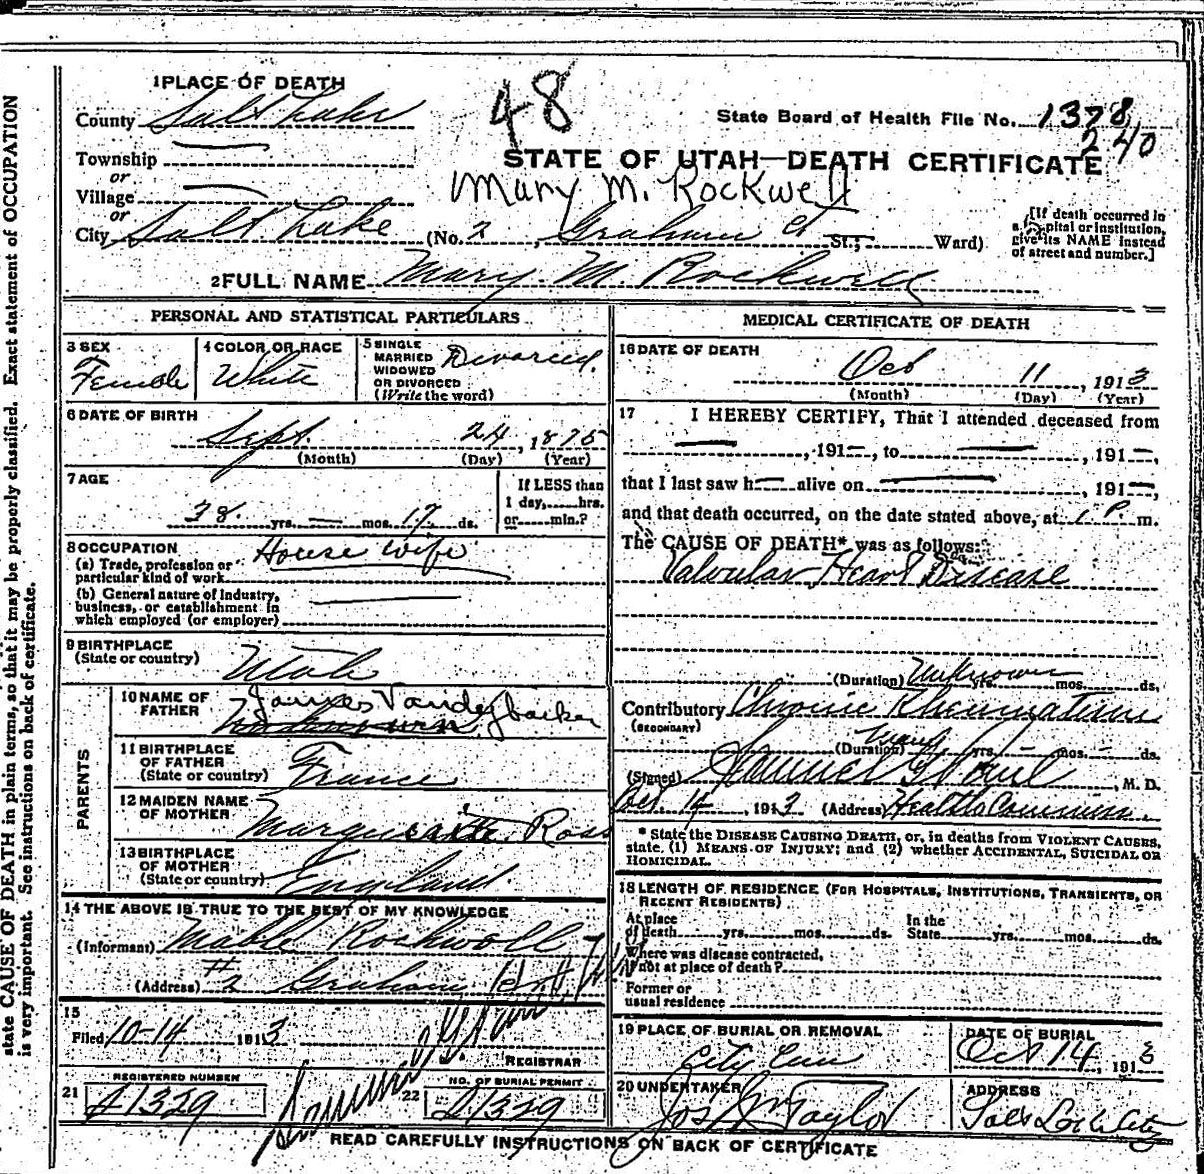 state CAUSE OF DEATH in plain terms, so that it may be properly classified. Exact statement of OCCUPATION
is very important. See instructions on back of certificate.
1 PLACE OF DEATH
County Salt Lake
48
State Board of Health File No. 1378
240
Township
or
Village
or
STATE OF UTAH—DEATH CERTIFICATE
Mary M. Rockwell
City Salt Lake (No. 2, Graham St.; Ward)
[If death occurred in
a pital or institution,
give its NAME instead
of street and number.]
2 FULL NAME Mary M. Rockwell
PERSONAL AND STATISTICAL PARTICULARS
3 SEX
Female
4 COLOR OR RACE
White
5 SINGLE
MARRIED
WIDOWED
OR DIVORCED
(Write the word)
Divorced.
6 DATE OF BIRTH
Sept. 24, 1875
(Month) (Day) (Year)
7 AGE
38 yrs. — mos. 17 ds.
If LESS than
1 day,.....hrs.
or.....min.?
8 OCCUPATION
(a) Trade, profession or
particular kind of work
House wife
(b) General nature of industry,
business, or establishment in
which employed (or employer)
9 BIRTHPLACE
(State or country)
Utah
PARENTS
10 NAME OF
FATHER
James
11 BIRTHPLACE
OF FATHER
(State or country)
France
12 MAIDEN NAME
OF MOTHER
Marguerite Ross
13 BIRTHPLACE
OF MOTHER
(State or country)
England.
14 THE ABOVE IS TRUE TO THE BEST OF MY KNOWLEDGE
(Informant) Mable Rockwell
(Address) #2 Graham
15
Filed 10-14 1913
REGISTRAR
21 REGISTERED NUMBER
A1329
22 NO. OF BURIAL PERMIT
A1329
MEDICAL CERTIFICATE OF DEATH
16 DATE OF DEATH
Oct 11, 1913
(Month) (Day) (Year)
17 I HEREBY CERTIFY, That I attended deceased from
—, 191—, to —, 191—,
that I last saw h— alive on —, 191—,
and that death occurred, on the date stated above, at 1 P m.
The CAUSE OF DEATH* was as follows:
Valvular Heart Disease
(Duration) Unknown yrs. mos. ds.
Contributory Chronic Rheumatism
(SECONDARY)
(Duration) Many yrs. — mos. — ds.
(Signed) Samuel G. Paul, M. D.
Oct. 14, 1913 (Address) Health
* State the DISEASE CAUSING DEATH, or, in deaths from VIOLENT CAUSES,
state, (1) MEANS OF INJURY; and (2) whether ACCIDENTAL, SUICIDAL OR
HOMICIDAL.
18 LENGTH OF RESIDENCE (FOR HOSPITALS, INSTITUTIONS, TRANSIENTS, OR
RECENT RESIDENTS)
At place
of death yrs. mos. ds.
In the
State yrs. mos. ds.
Where was disease contracted,
if not at place of death?
Former or
usual residence
19 PLACE OF BURIAL OR REMOVAL
City Cem
DATE OF BURIAL
Oct 14, 1913
20 UNDERTAKER
Jos Wm Taylor
ADDRESS
Salt Lake City
READ CAREFULLY INSTRUCTIONS ON BACK OF CERTIFICATE